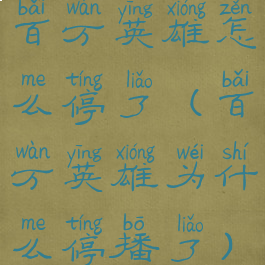 bǎi wàn yīng xióng zěn
百万英雄怎
me tíng liǎo bǎi
么停了（百
wàn yīng xióng wéi shí
万英雄为什
me tíng bō liǎo
么停播了）